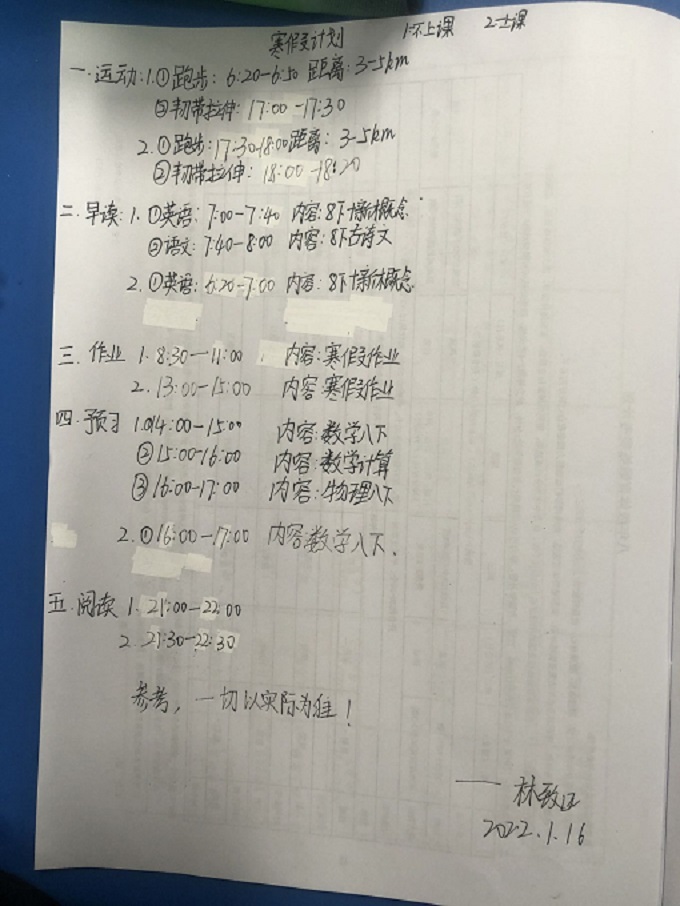 寒假计划 1:不上课 2:上课
一. 运动: 1.①跑步: 6:20-6:50 距离: 3-5km
②韧带拉伸: 17:00-17:30
2.①跑步: 17:30-18:00 距离: 3-5km
②韧带拉伸: 18:00-18:20
二. 早读: 1. ①英语: 7:00-7:40 内容: 8下+新概念
②语文: 7:40-8:00 内容: 8下古诗文
2. ①英语: 6:20-7:00 内容: 8下+新概念
三. 作业 1. 8:30—11:00 内容: 寒假作业
2. 13:00-15:00 内容: 寒假作业
四. 预习 1.①14:00-15:00 内容: 数学八下
②15:00-16:00 内容: 数学计算
③16:00-17:00 内容: 物理八下
2.①16:00-17:00 内容: 数学八下.
五. 阅读 1. 21:00—22:00
2. 21:30-22:30
参考, 一切以实际为准!
—— 林致
2022.1.16